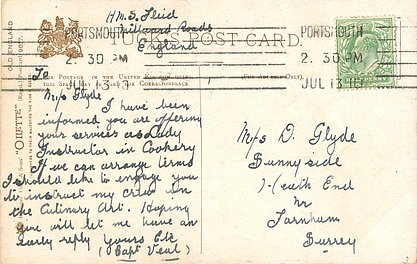 H.M.S.
Roads
England
PORTSMOUTH
2. 30 PM
JUL 13
PORTSMOUTH
2. 30 PM
JUL 13
TUCK'S POST CARD.
HALFPENNY
OLD ENGLAND
"OILETTE"
FOR POSTAGE IN THE UNITED
CORRESPONDENCE.
To
Mrs Glyde
I have been
informed you are offering
your services as Lady
Instructor in Cookery
If we can arrange terms
I should like to engage you
to instruct my crew in
the Culinary Art. Hoping
you will let me have an
early reply Yours Etc
(Capt Veal)
Mrs D. Glyde
Sunnyside
End
Nr
Farnham
Surrey